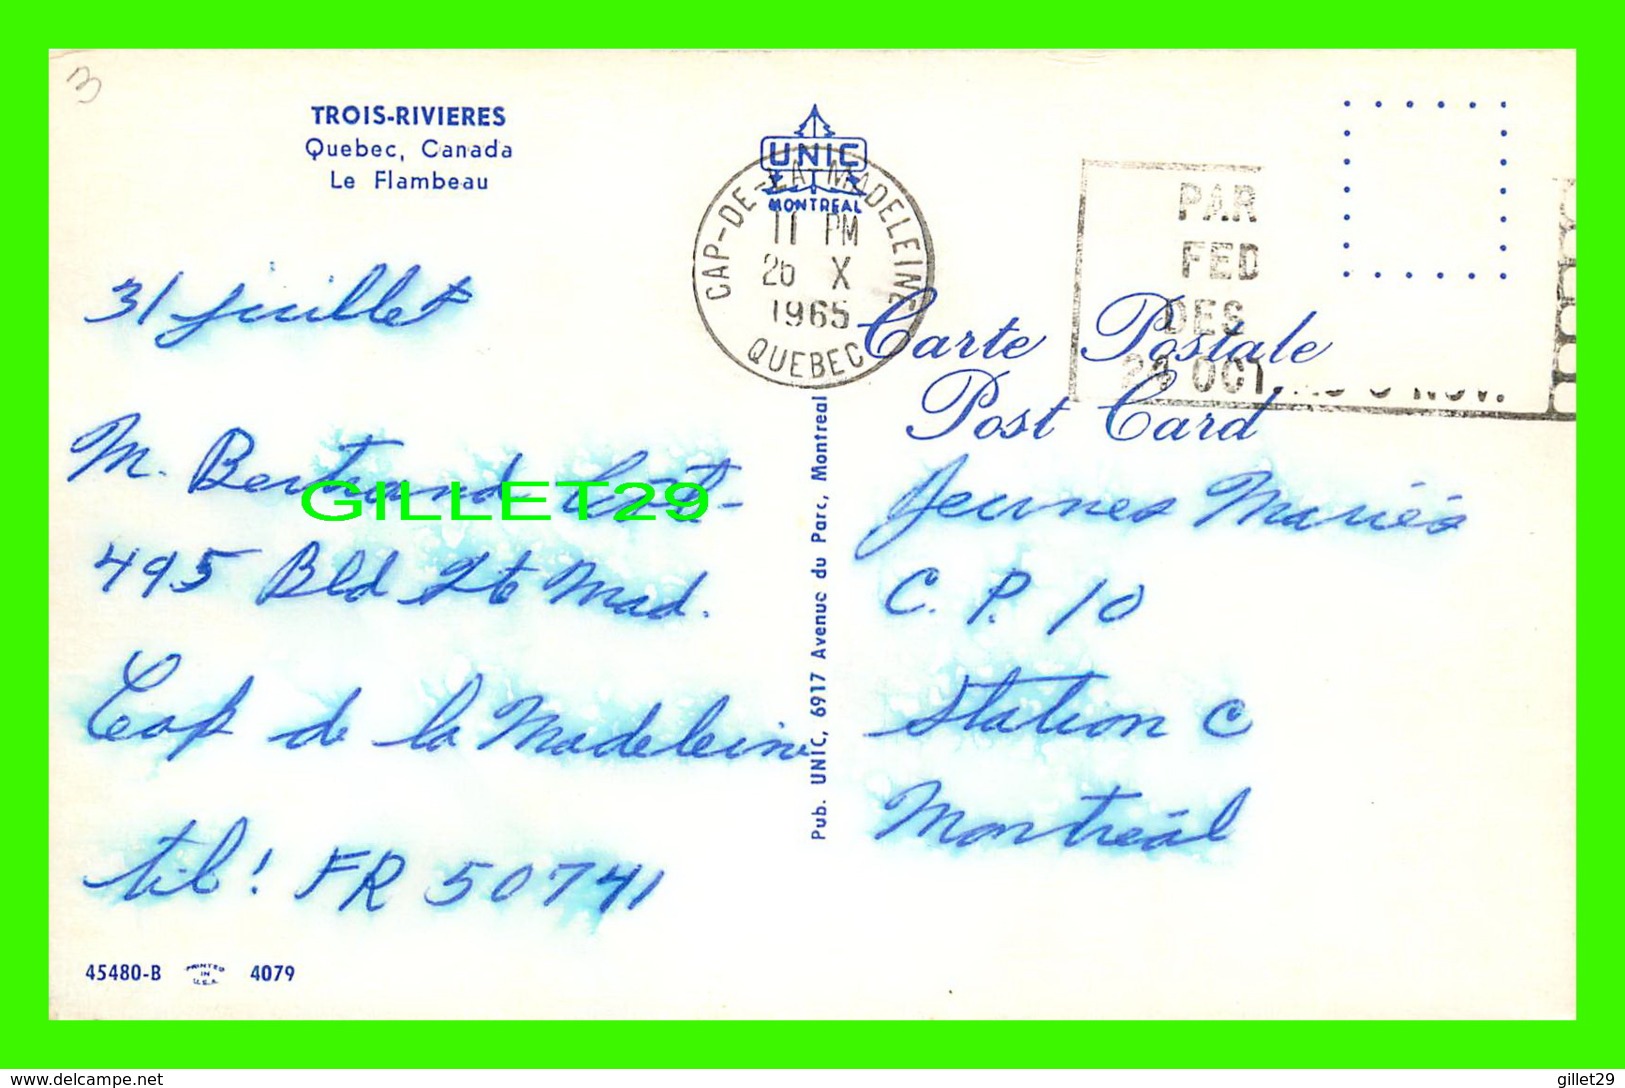 3
TROIS-RIVIERES
Quebec, Canada
Le Flambeau
UNIC
MONTREAL
CAP-DE-LA-MADELEINE
11 PM
26 X
1965
QUEBEC
PAR
FED
DES
OCT. NOV.
Carte Postale
Post Card
31 juillet
M. Bertrand
GILLET29
495 Bld Ste Mad.
Cap de la Madeleine
tél! FR 50741
Jeunes Mariés
C. P. 10
Station C
Montréal
Pub. UNIC, 6917 Avenue du Parc, Montreal
45480-B PRINTED IN U.S.A. 4079
www.delcampe.net
gillet29